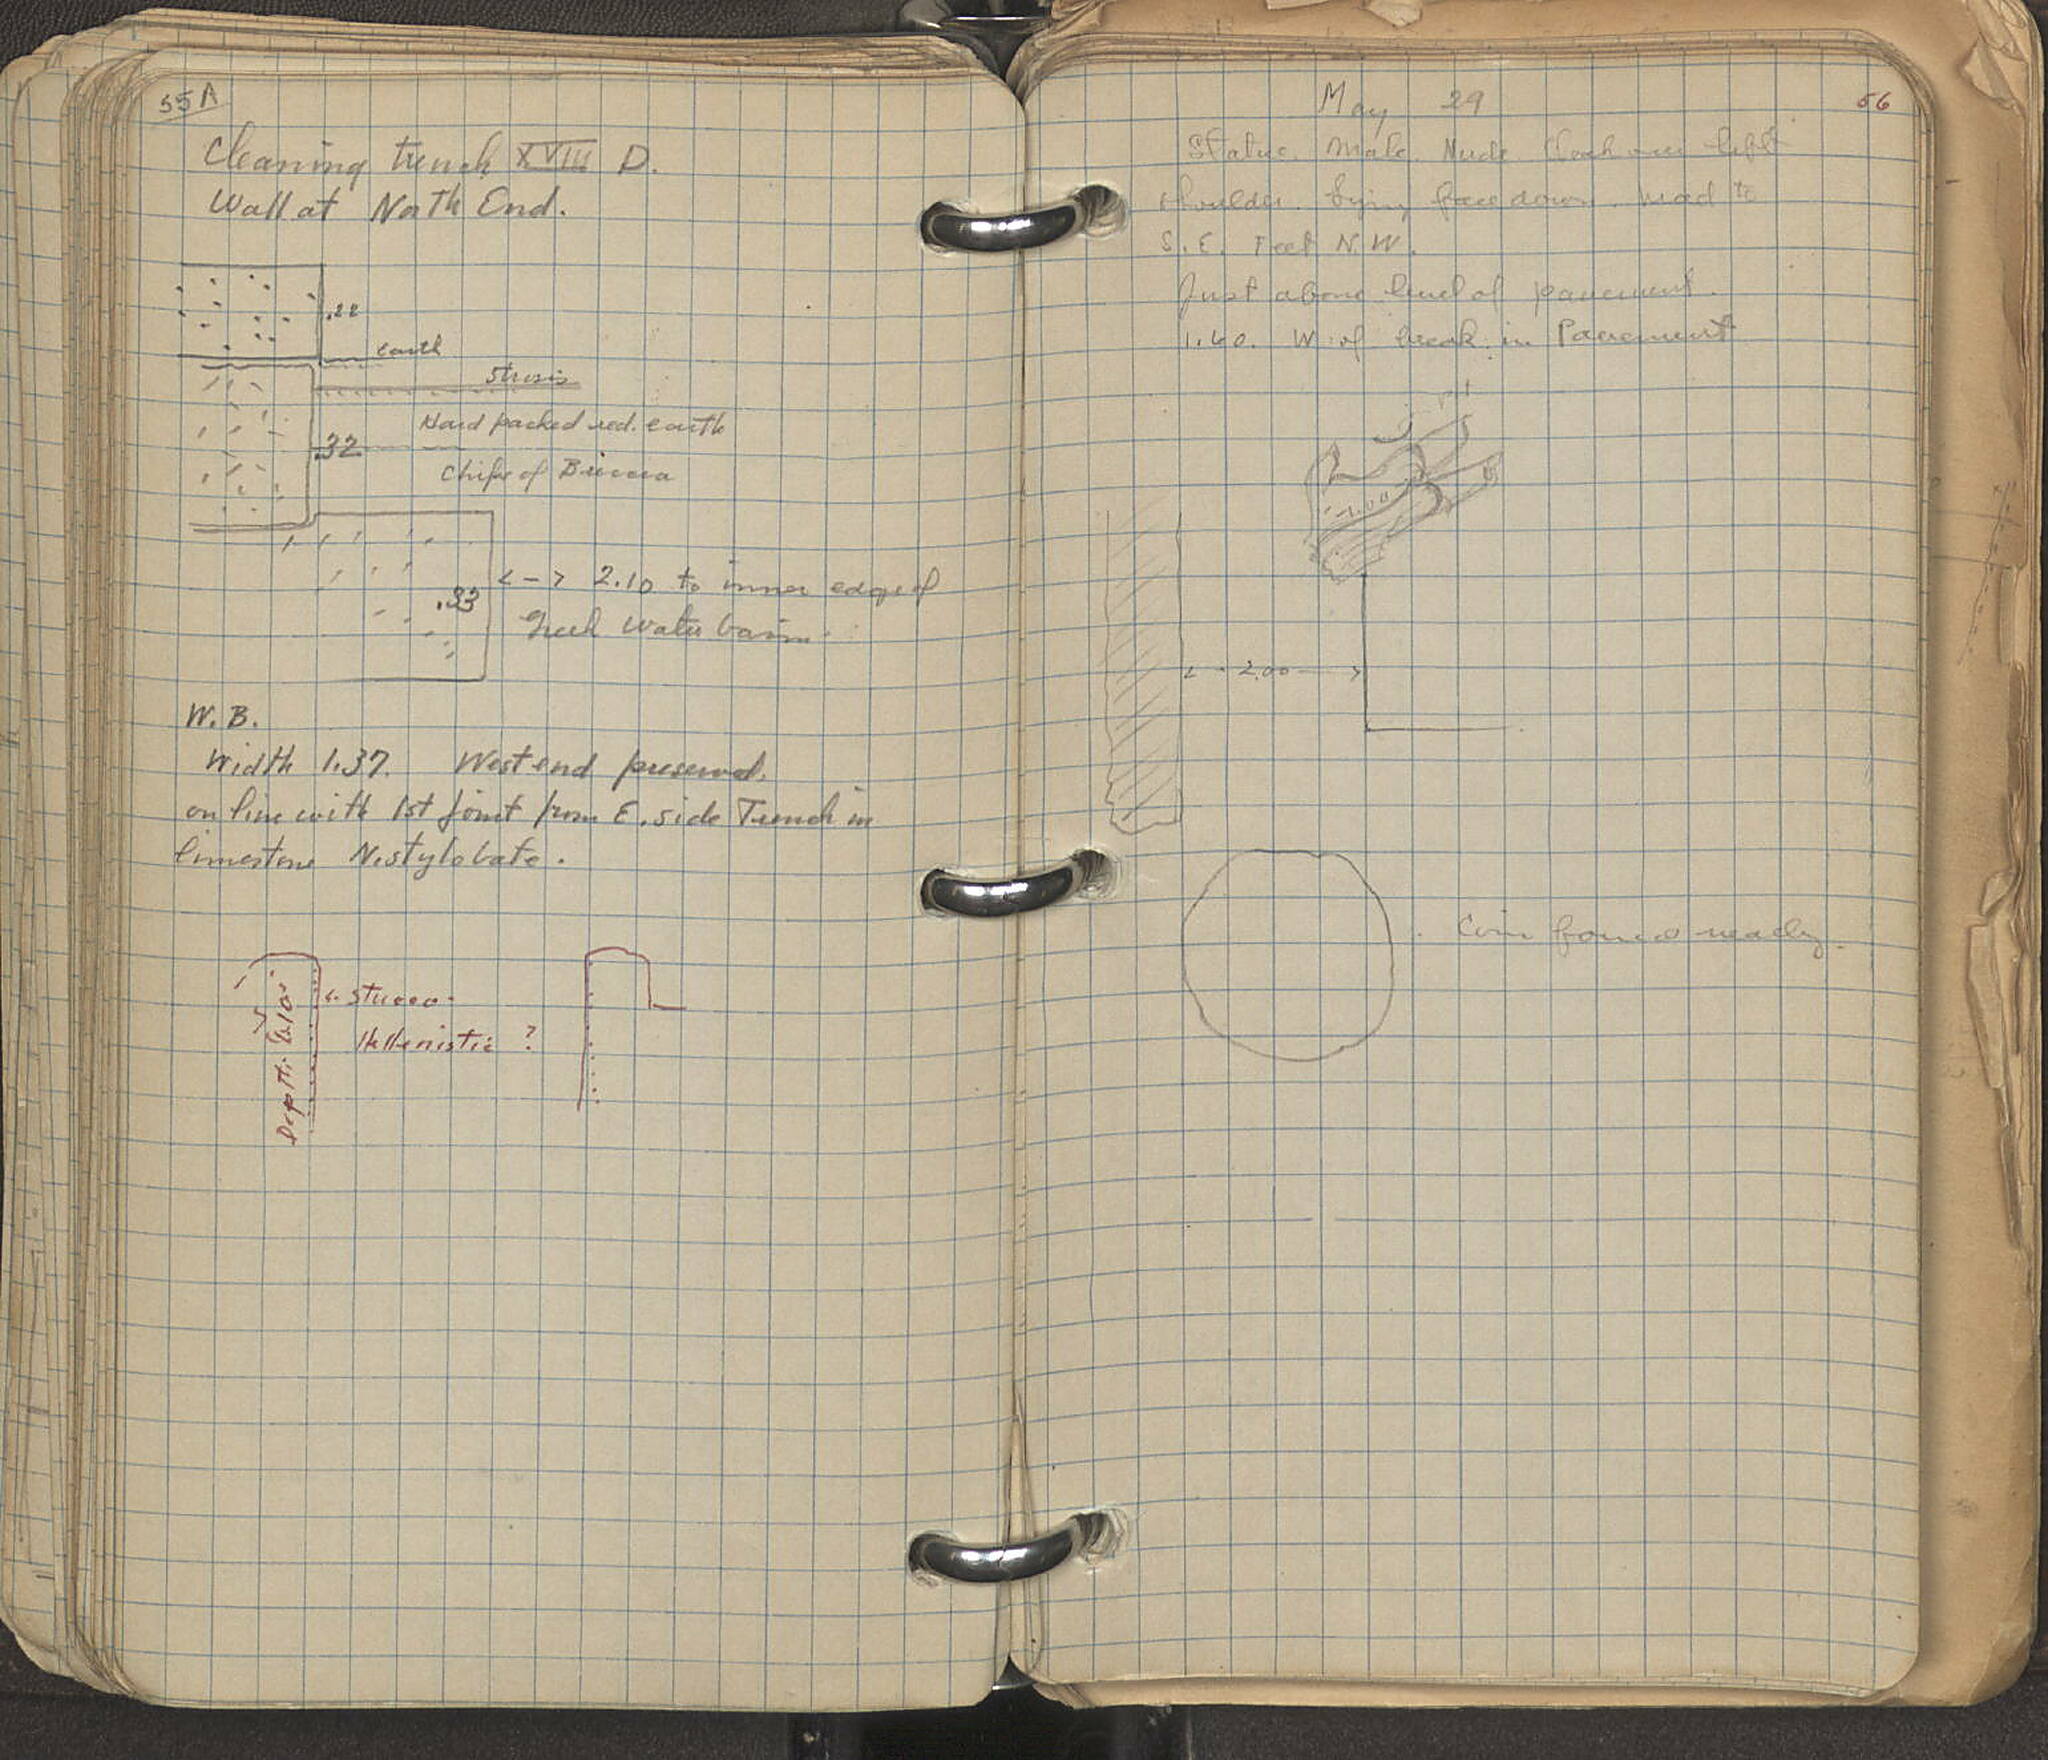 55A
Cleaning trench XVIII D.
Wall at North End.
.22
earth
Strosis
Hard packed red. earth
.32
Chips of Breccia
<-> 2.10 to inner edge of
.33
Greek Water basin.
W. B.
Width 1.37. West end preserved.
on line with 1st joint from E. side Trench in
limestone N. stylobate.
<- stucco.
Hellenistic ?
Depth:
May 29
56
Statue. Male. Nude. Cloak over left
shoulder. lying face down. head to
S. E. Feet N. W.
Just above level of pavement.
1.60. W. of break in Pavement
1.00
<- 2.00 ->
Coin found nearby.